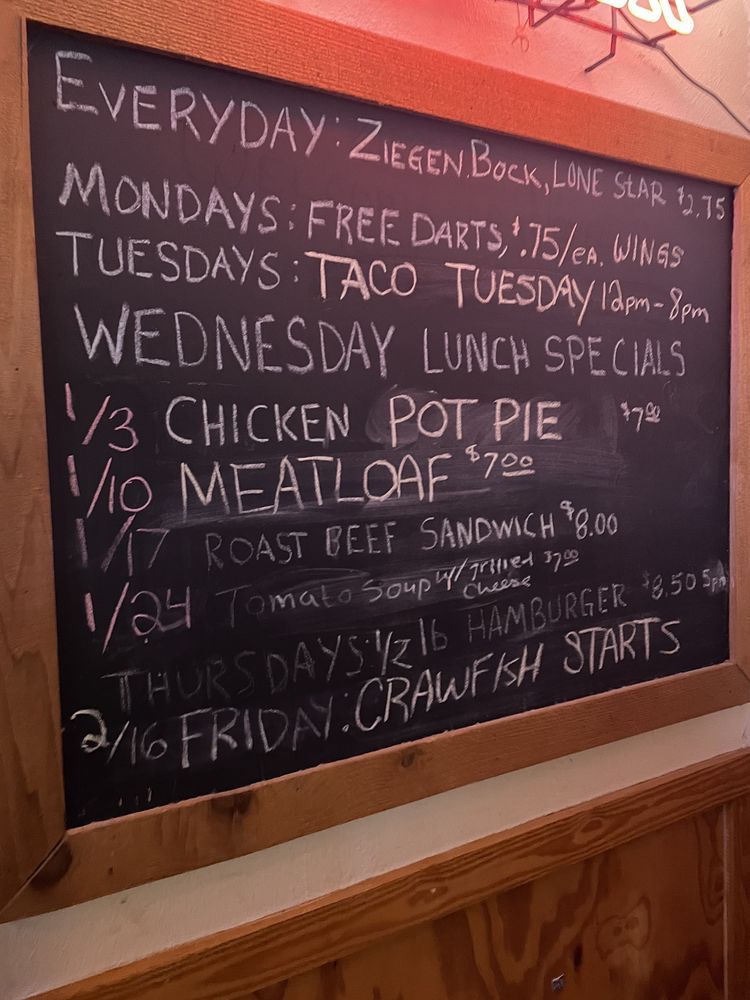 EVERYDAY: ZIEGEN.BOCK, LONE STAR $2.75
MONDAYS: FREE DARTS, $.75/EA. WINGS
TUESDAYS: TACO TUESDAY 12pm-8pm
WEDNESDAY LUNCH SPECIALS
1/3 CHICKEN POT PIE $7.00
1/10 MEATLOAF $7.00
1/17 ROAST BEEF SANDWICH $8.00
1/24 Tomato Soup w/ grilled cheese $7.00
THURSDAYS: 1/2 lb HAMBURGER $8.50 5pm
2/16 FRIDAY: CRAWFISH STARTS